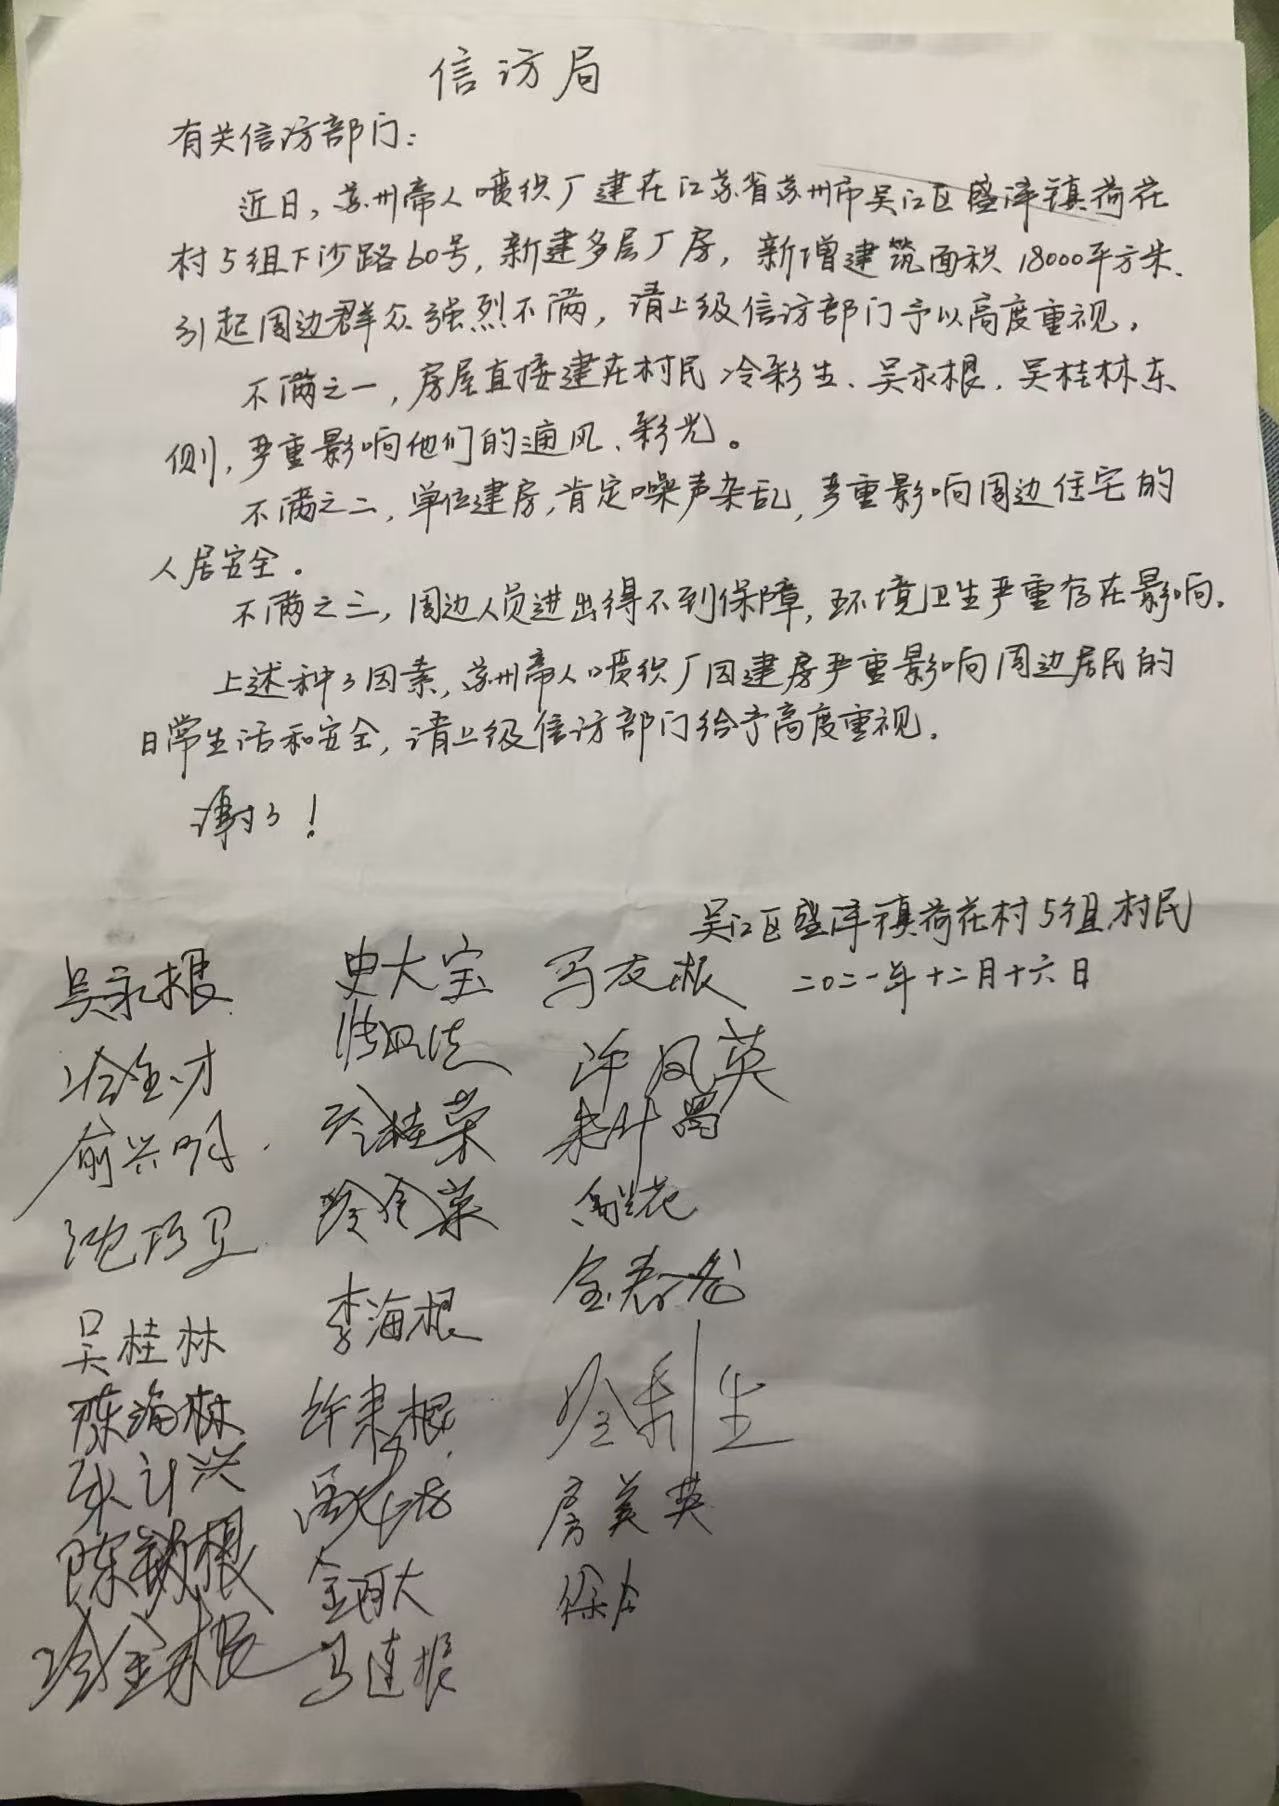 信访局
有关信访部门:
近日,苏州帝人喷织厂建在江苏省苏州市吴江区盛泽镇荷花
村5组下沙路60号,新建多层厂房,新增建筑面积18000平方米.
引起周边群众强烈不满,请上级信访部门予以高度重视,
不满之一,房屋直接建在村民冷彩生、吴永根.吴桂林东
侧,严重影响他们的通风、彩光。
不满之二,单位建房,肯定噪声杂乱,严重影响周边住宅的
人居安全。
不满之三,周边人员进出得不到保障,环境卫生严重存在影响.
上述种々因素,苏州帝人喷织厂因建房严重影响周边居民的
日常生活和安全,请上级信访部门给予高度重视.
谢々!
吴江区盛泽镇荷花村5组村民
二〇二一年十二月十六日
吴永根 史大宝 马友根
冷金才 许凤英
俞兴明 冷桂荣
沈巧卫 冷金菜
吴桂林 李海根
陈海林 许来根 冷彩生
张计兴 房美英
陈锁根 金丙大
冷金根 马连根